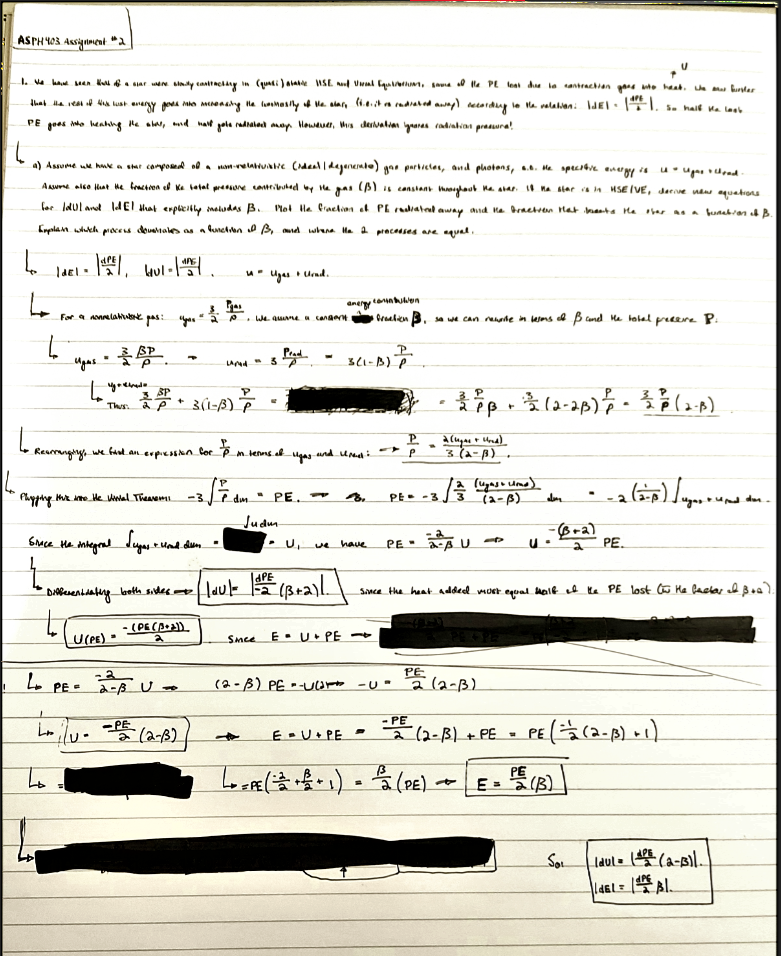 ASPH 403 Assignment #2
U
1. We have seen that if a star were slowly contracting in (quasi) static HSE and Virial Equilibrium, some of the PE lost due to contraction goes into heat. We saw further
that the rest of this lost energy goes into increasing the luminosity of the star, (i.e. it is radiated away) according to the relation: |dE| = |dPE/2|. So half the lost
PE goes into heating the star, and half gets radiated away. However, this derivation ignores radiation pressure!
a) Assume we have a star composed of a non-relativistic (ideal/degenerate) gas particles, and photons, s.t. the specific energy is u = ugas + urad.
Assume also that the fraction of the total pressure contributed by the gas (β) is constant throughout the star. If the star is in HSE/VE, derive new equations
for |dU| and |dE| that explicitly includes β. Plot the fraction of PE radiated away and the fraction that heats the star as a function of β.
Explain which process dominates as a function of β, and where the 2 processes are equal.
|dE| = |dPE/2|, |dU| = |dPE/2|. u = ugas + urad.
energy contribution
For a nonrelativistic gas: ugas = 3/2 Pgas/ρ. We assume a constant fraction β, so we can rewrite in terms of β and the total pressure P:
ugas = 3/2 βP/ρ. → urad = 3 Prad/ρ = 3(1-β) P/ρ
ug+urad=
Thus: 3/2 βP/ρ + 3(1-β) P/ρ = = 3/2 P/ρ β + 3/2 (2-2β) P/ρ = 3/2 P/ρ (2-β)
Rearranging, we find an expression for P/ρ in terms of ugas and urad: → P/ρ = 2(ugas + urad)/3(2-β).
Plugging this into the Virial Theorem: -3∫P/ρ dm = PE. → PE = -3∫2/3 (ugas + urad)/(2-β) dm = -2 (1/2-β) ∫ugas + urad dm.
∫u dm
Since the integral ∫ugas + urad dm = = U, we have PE = -2/2-β U → U = -(β+2)/2 PE.
Differentiating both sides → |dU| = |dPE/-2 (β+2)|. since the heat added must equal half of the PE lost (w the factor of β+2)
U(PE) = -(PE(β+2))/2. Since E = U + PE →
PE = -2/2-β U → (2-β) PE = -U(2) → -U = PE/2 (2-β)
U = -PE/2 (2-β) → E = U + PE = -PE/2 (2-β) + PE = PE(-1/2 (2-β) + 1)
= = PE(-2/2 + β/2 + 1) = β/2 (PE) → E = PE/2 (β)
So: |dU| = |dPE/2 (2-β)|.
|dE| = |dPE/2 β|.